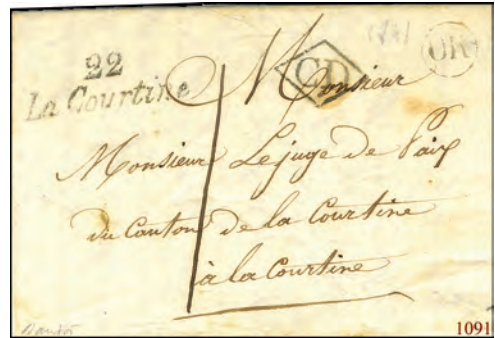 22
La Courtine
CD
OR
Monsieur
Monsieur Le juge de Paix
du Canton de la Courtine
à la Courtine
1091